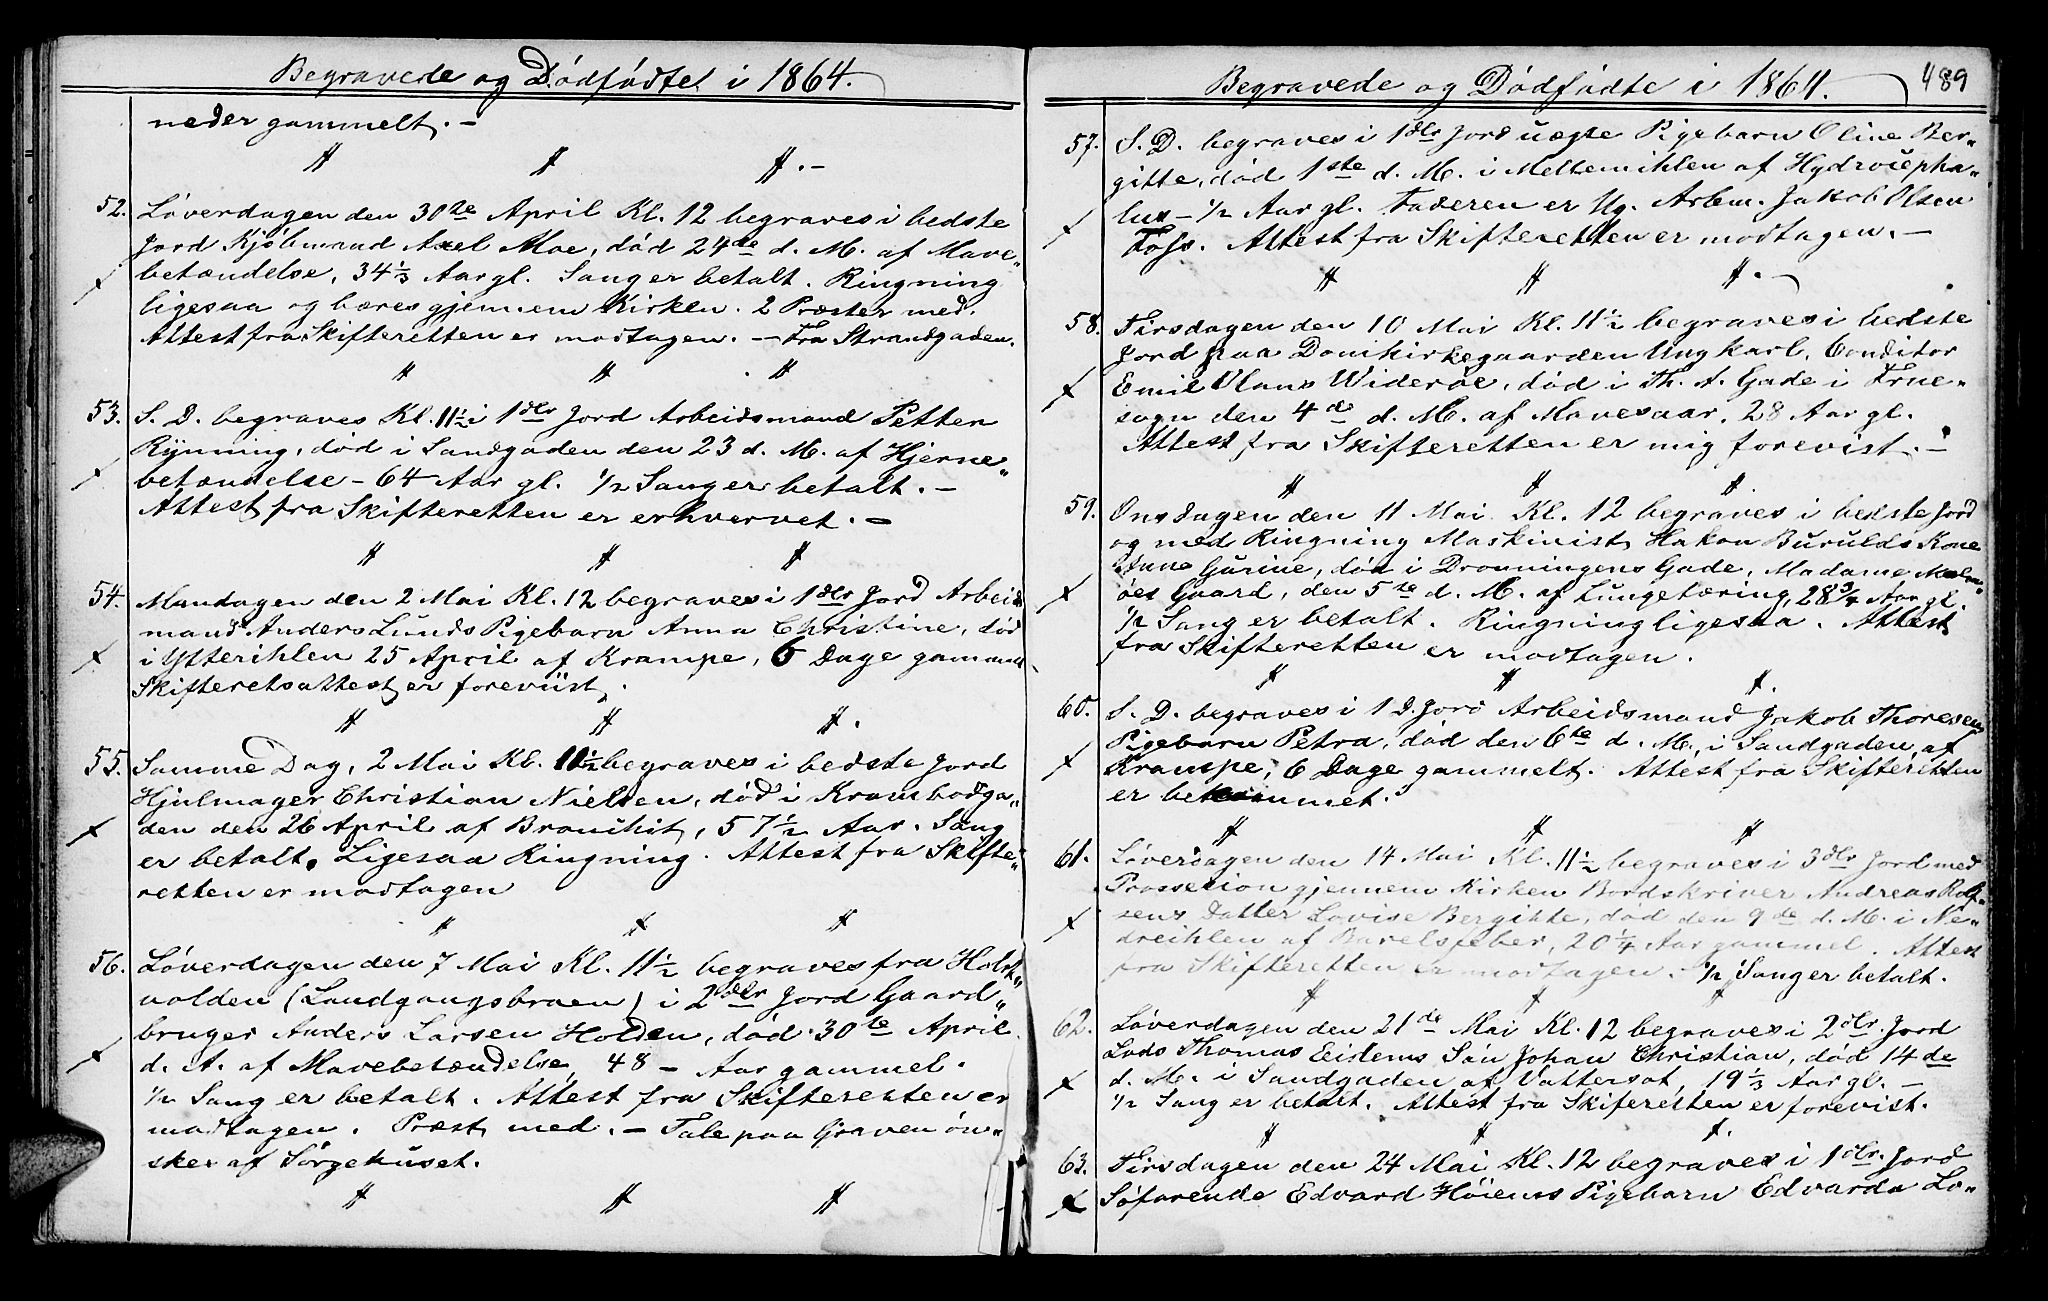 Begravede og Dødfødte i 1864.
neder gammelt. –
52. Løverdagen den 30te April Kl. 12 begraves i bedste
Jord Kjøbmand Axel Moe, død 24de d. M. af Mave„
betændelse, 34 1/3 Aar gl. Sang er betalt. Ringning
ligesaa og bæres gjennem Kirken. 2 Præster med.
Attest fra Skifteretten er modtagen. – Fra Strandgaden.
53. S. D. begraves Kl. 11 1/2 i 1 dlr Jord Arbeidsmand Petter
Rynning, død i Sandgaden den 23 d. M. af Hjerne„
betændelse – 64 Aar gl. 1/2 Sang er betalt. –
Attest fra Skifteretten er erhvervet. –
54. Mandagen den 2 Mai Kl. 12 begraves i 1 dlr Jord Arbeids
mand Anders Lunds Pigebarn Anna Christine, død
i Ytterihlen 25 April af Krampe, 6 Dage gammel
Skifteretsattest er foreviist.
55. Samme Dag, 2 Mai Kl. 11 1/2 begraves i bedste Jord
Hjulmager Christian Nielsen, død i Krambodga„
den den 26 April af Bronchit, 57 1/2 Aar. Sang
er betalt. Ligesaa Ringning. Attest fra Skifte„
retten er modtagen
56. Løverdagen den 7 Mai Kl. 11 1/2 begraves fra Holst„
volden (Landgangsbroen) i 2 dlr Jord Gaard„
bruger Anders Larsen Holden, død 30te April
d. A. af Mavebetændelse, 48 – Aar gammel.
1/2 Sang er betalt. Attest fra Skifteretten er
modtagen. Præst med. – Tale paa Graven øn„
skes af Sørgehuset.
Begravede og Dødfødte i 1864.
489
57. S. D. begraves i 1 dlr Jord uægte Pigebarn Oline Ber„
gitte, død 1ste d. M. i Mellemihlen af Hydrocepha„
lus – 1/2 Aar gl. Faderen er Ug. Arbm. Jakob Olsen
Foss. Attest fra Skifteretten er modtagen. –
58. Tirsdagen den 10 Mai Kl. 11 1/2 begraves i bedste
Jord paa Domkirkegaarden Ungkarl, Conditor
Emil Olaus Widerøe, død i Th. A. Gade i Frue„
sogn den 4de d. M. af Mavesaar, 28 Aar gl.
Attest fra Skifteretten er mig forevist. –
59. Onsdagen den 11 Mai Kl. 12 begraves i bedste Jord
og med Ringning Maskinist Hakon Burulds Kone
Anne Gurine, død i Dronningens Gade, Madame
Gaard, den 5te d. M. af Lungetæring, 28 3/4 Aar gl.
1/2 Sang er betalt. Ringning ligesaa. Attest
fra Skifteretten er modtagen.
60. S. D. begraves i 1 D. Jord Arbeidsmand Jakob Thoresens
Pigebarn Petra, død den 6te d. M. i Sandgaden af
Krampe, 6 Dage gammelt. Attest fra Skifteretten
er bekommet.
61. Løverdagen den 14 Mai Kl. 11 1/2 begraves i 3 dlr Jord med
Prossesion gjennem Kirken Bordskriver Andreas Rolf„
sens Datter Lovise Bergitte, død den 9de d. M. i Ne„
dreihlen af Barelsfeber, 20 1/4 Aar gammel. Attest
fra Skifteretten er modtagen. 1/2 Sang er betalt.
62. Løverdagen den 21de Mai Kl. 12 begraves i 2 dlr. Jord
Lods Thomas Eidems Søn Johan Christian, død 14de
d. M. i Sandgaden af Vattersot, 19 1/3 Aar gl. –
1/2 Sang er betalt. Attest fra Skifteretten er forevist.
63. Tirsdagen den 24 Mai Kl. 12 begraves i 1 dlr. Jord
Søfarende Edvard Høiens Pigebarn Edvarda Lo„